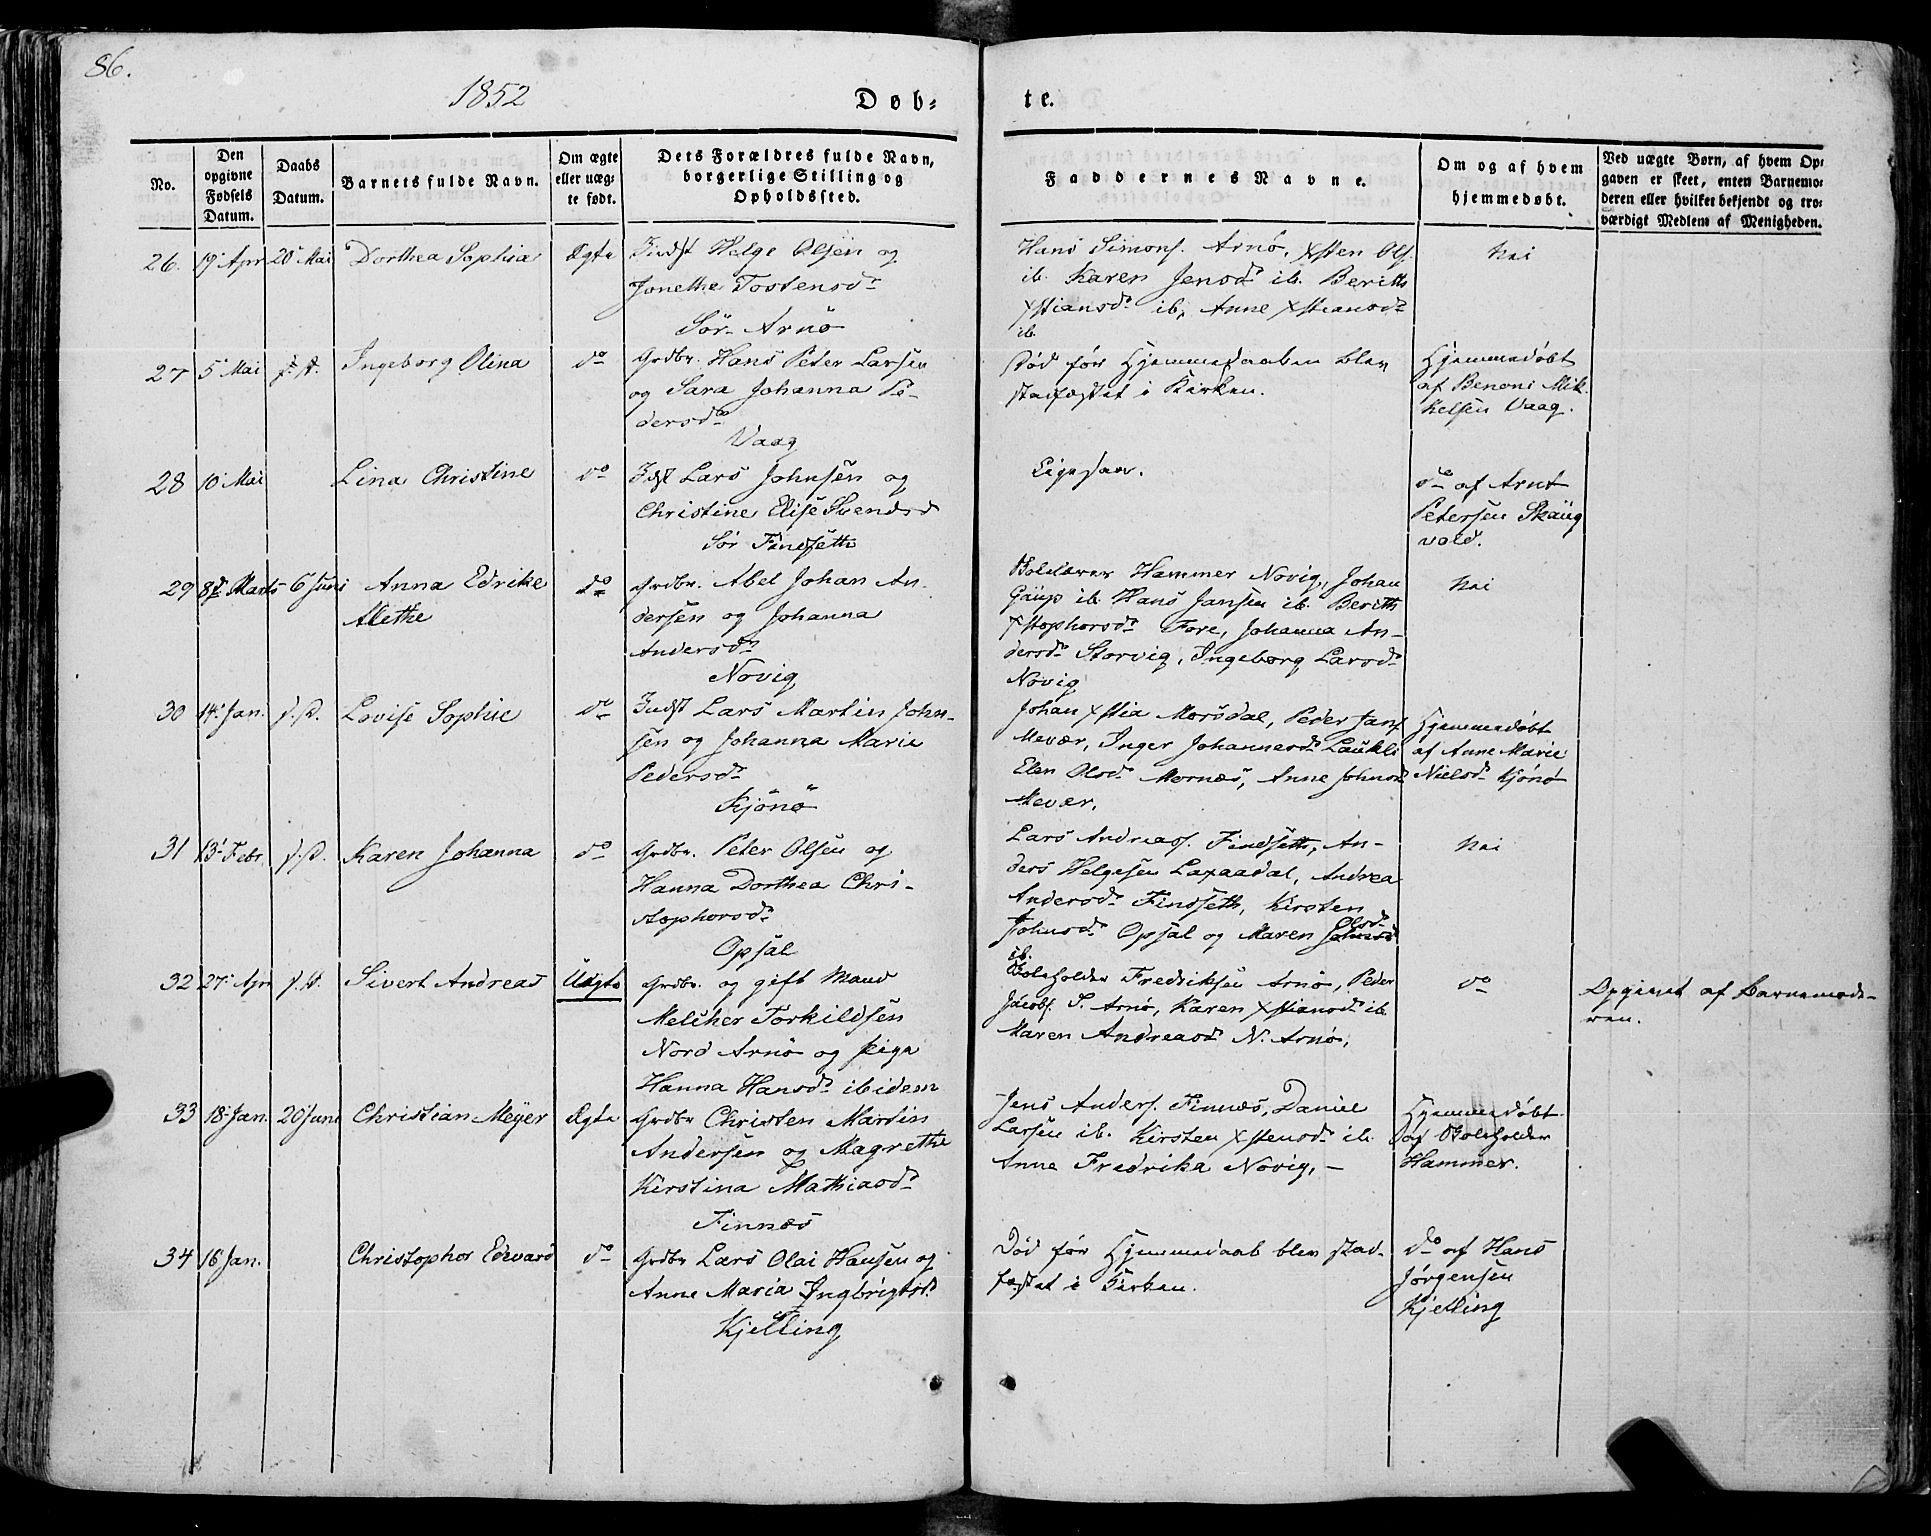 86.
1852
Døb-
te.
No.
Den opgivne Fødsels Datum.
Daabs Datum.
Barnets fulde Navn.
Om ægte eller uæg-te født.
Dets Forældres fulde Navn, borgerlige Stilling og Opholdssted.
Faddernes Navne.
Om og af hvem hjemmedøbt.
Ved uægte Børn, af hvem Op-gaven er skeet, enten Barnemo-deren eller hvilket bekjendt og tro-værdigt Medlem af Menigheden.
26. 19 Apr 20 Mai Dorthea Sophia Ægte
Indst Helge Olsen og
Jonethe Tostensd.
Sør-Arnø
Hans Simons. Arnø, Xsten Ols.
ib. Karen Jensd. ib. Berith
Xstiansd. ib, Anne Xstiansd.
ib.
Nei
27 5 Mai Ingeborg Olina do
Grdbr. Hans Peter Larsen
og Sara Johanna Pe-
dersd.
Vaag
Død før Hjemmedaaben blev
stadfæstet i Kirken.
Hjemmedøbt
af Benoni Mik-
kelsen Vaag.
28 10 Mai Lina Christine do
Indst Lars Johnsen og
Christine Elise Svendsd
Sør Findseth
Ligesaa.
do af Arnt
Petersen Skaug
vold.
29 8d Marts 6 Juni Anna Edrike
Alethe
do
Grdbr. Abel Johan An-
dersen og Johanna
Andersd.
Novig
Hammer Novig, Johan
Gaup ib. Hans Jansen ib. Berith
Xstophorsd. Fore, Johanna An-
dersd. Storvig, Ingeborg Larsd.
Novig
Nei
30 14 Jan. d.D. Lovise Sophie do
Indst Lars Martin John-
sen og Johanna Marie
Pedersd.
Kjønø
Johan Xstia Morsdal, Peder Jans
Mevær, Inger Johannesd. Laukli
Elen Olsd. Mornæs, Anne Johnsd
Mevær.
Hjemmedøbt
af Anne Marie
Nielsd. Kjønø
31 13 Febr. d.D. Karen Johanna do
Grdbr. Peter Olsen og
Hanna Dorthea Chri-
stophorsd.
Opsal
Lars Andreas. Findseth, An-
ders Helgesen Laxaadal, Andrea
Andersd. Findseth, Kirsten
Johnsd. Opsal og Maren Olsd.
ib.
Nei
32 27 Apr d.D. Sivert Andreas Uægte
Grdbr. og gift Mand
Melcher Torkildsen
Nord Arnø og Piga
Hanna Hansd. ibidem
Skoleholder Fredriksen Arnø, Peder
Jacobs. S. Arnø, Karen Xstiansd. ib.
Maren Andreasd N. Arnø.
do
Opgivet af Barnemode-
ren.
33 18 Jan. 20 Juni Christian Meyer Ægte
Grdbr Christen Martin
Andersen og Magrethe
Kirstina Mathiasd.
Finnæs
Jens Anders. Finnæs, Daniel
Larsen ib. Kirsten Xstensd. ib.
Anne Fredrika Novig, -
Hjemmedøbt
af Skoleholder
Hammer.
34 16 Jan. Christophor Edevard do
Grdbr Lars Olai Hansen og
Anne Maria Ingbrigtsd.
Kjelling
Død før Hjemmedaab blev stad-
fæstet i Kirken.
do af Hans
Jørgensen
Kjelling